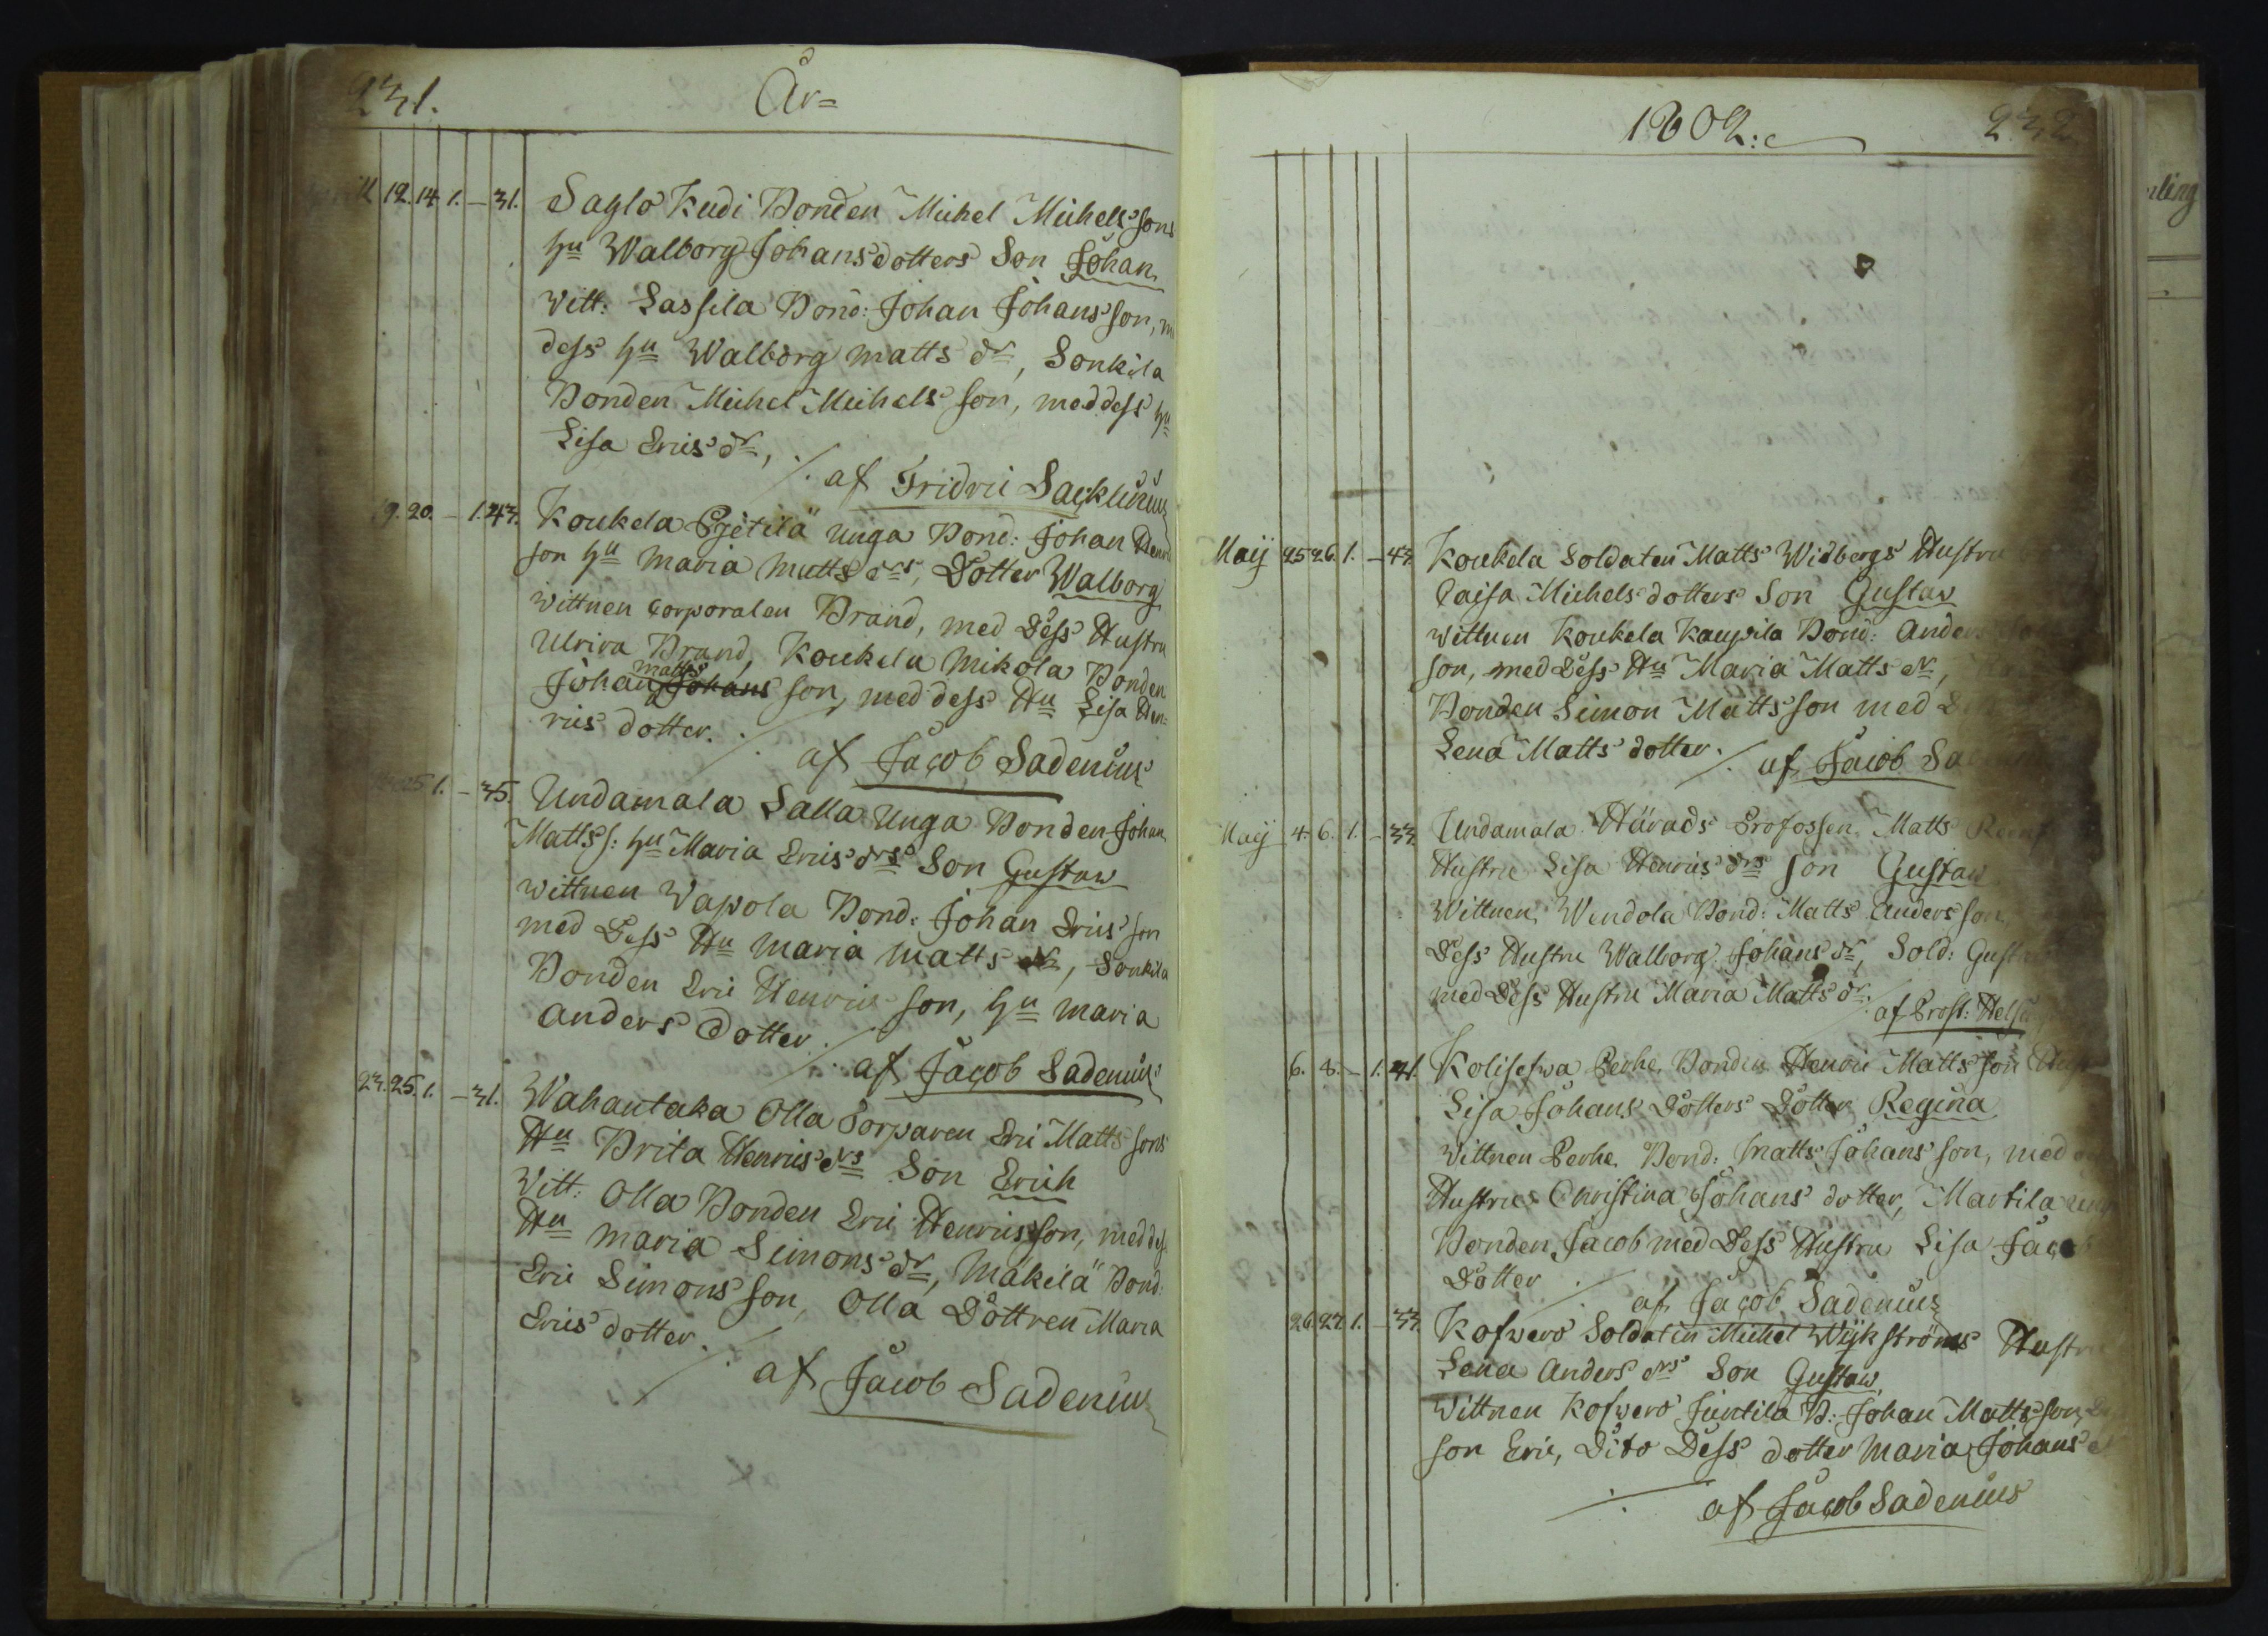 231.
År=
12. 14. 1. — 31. Saglo Kudi Bonden Michel Michelssons
hu Walborg Johansdotters Son Johan
Witt: Lassila Bond: Johan Johansson, m
dess hu Walborg Matts dr, Sonkila
Bonden Michel Michelsson, med dess hu
Lisa Erics dr, ./. af Fridric Sacklinius
19. 20. — 1. 43. Koukela Pjetilä unga Bond: Johan Henric
son hu Maria Matts drs, Dotter Walborg
Wittnen Corporalen Brand, med Dess Hustru
Ulrica Brand, Koukela Mikola Bonden
Johan Matts Johans son, med dess Hu Lisa Hen=
rics dotter. ./. af Jacob Sadenius
25 1. — 35. Undamala Lalla Unga Bonden Johan
Matts s: hu Maria Erics drs Son Gustaw
Wittnen Wapola Bond: Johan Ericsson
med Dess Hu Maria Matts dr, Sonkila
Bonden Eric Henricsson, hu Maria
Anders Dotter. ./. af Jacob Sadenius
23. 25. 1. — 31. Wahantaka Olla Torparen Eric Mattssons
Hu Brita Henrics drs Son Erich
Witt: Olla Bonden Eric Henricsson, med dess
Hu Maria Simons dr, Mäkilä Bond:
Eric Simonsson, Olla Dottren Maria
Erics dotter. ./. af Jacob Sadenius
1802: 232
Maij 25 26. 1. — 43. Koukela Soldaten Matts Widbergs Hustru
Caisa Michelsdotters Son Gustaw
Wittnen Koukela Kaupila Bond: Anders
son, med Dess Hu Maria Matts dr,
Bonden Simon Mattsson med
Lena Matts dotter. ./. af Jacob Sa
Maij 4. 6. 1. — 33. Undamala Härads Profossen Matts
Hustru Lisa Henrics drs Son Gustaw
Wittnen, Wendola Bond: Matts Andersson,
Dess Hustru Walborg Johans dr, Sold: Gust
med Dess Hustru Maria Matts dr. ./. af Prost: Hels
6. 8. — 1. 41. Kolisefwa Perhe Bonden Henric Mattsson
Lisa Johans Dotters Dotter Regina
Wittnen Perhe Bond: Matts Johansson, med
Hustru Christina Johans dotter, Martila
Bonden Jacob med Dess Hustru Lisa Jacob
Dotter ./. af Jacob Sadenius
26. 27. 1. — 33. Kofwero Soldaten Michel Wijkströms Hustru
Lena Anders drs Son Gustaw
Wittnen Kofwero Juntila B: Johan Mattsson,
son Eric, Dito Dess dotter Maria Johans
./. af Jacob Sadenius